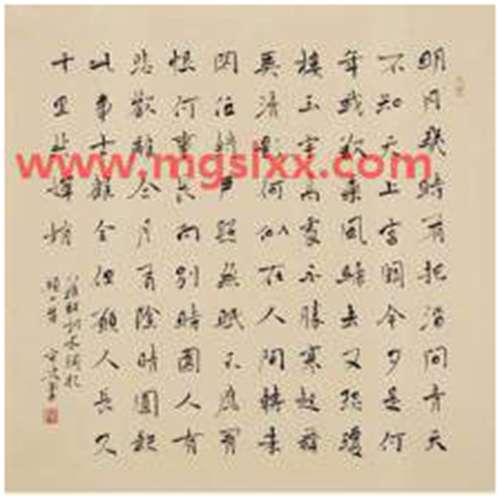 明月幾時有把酒問青天
不知天上宮闕今夕是何
年我欲乘風歸去又恐瓊
樓玉宇高處不勝寒起舞
弄清影何似在人間轉朱
閣低綺戶照無眠不應有
恨何事長向別時圓人有
悲歡離合月有陰晴圓缺
此事古難全但願人長久
千里共嬋娟
www.mgslxx.com